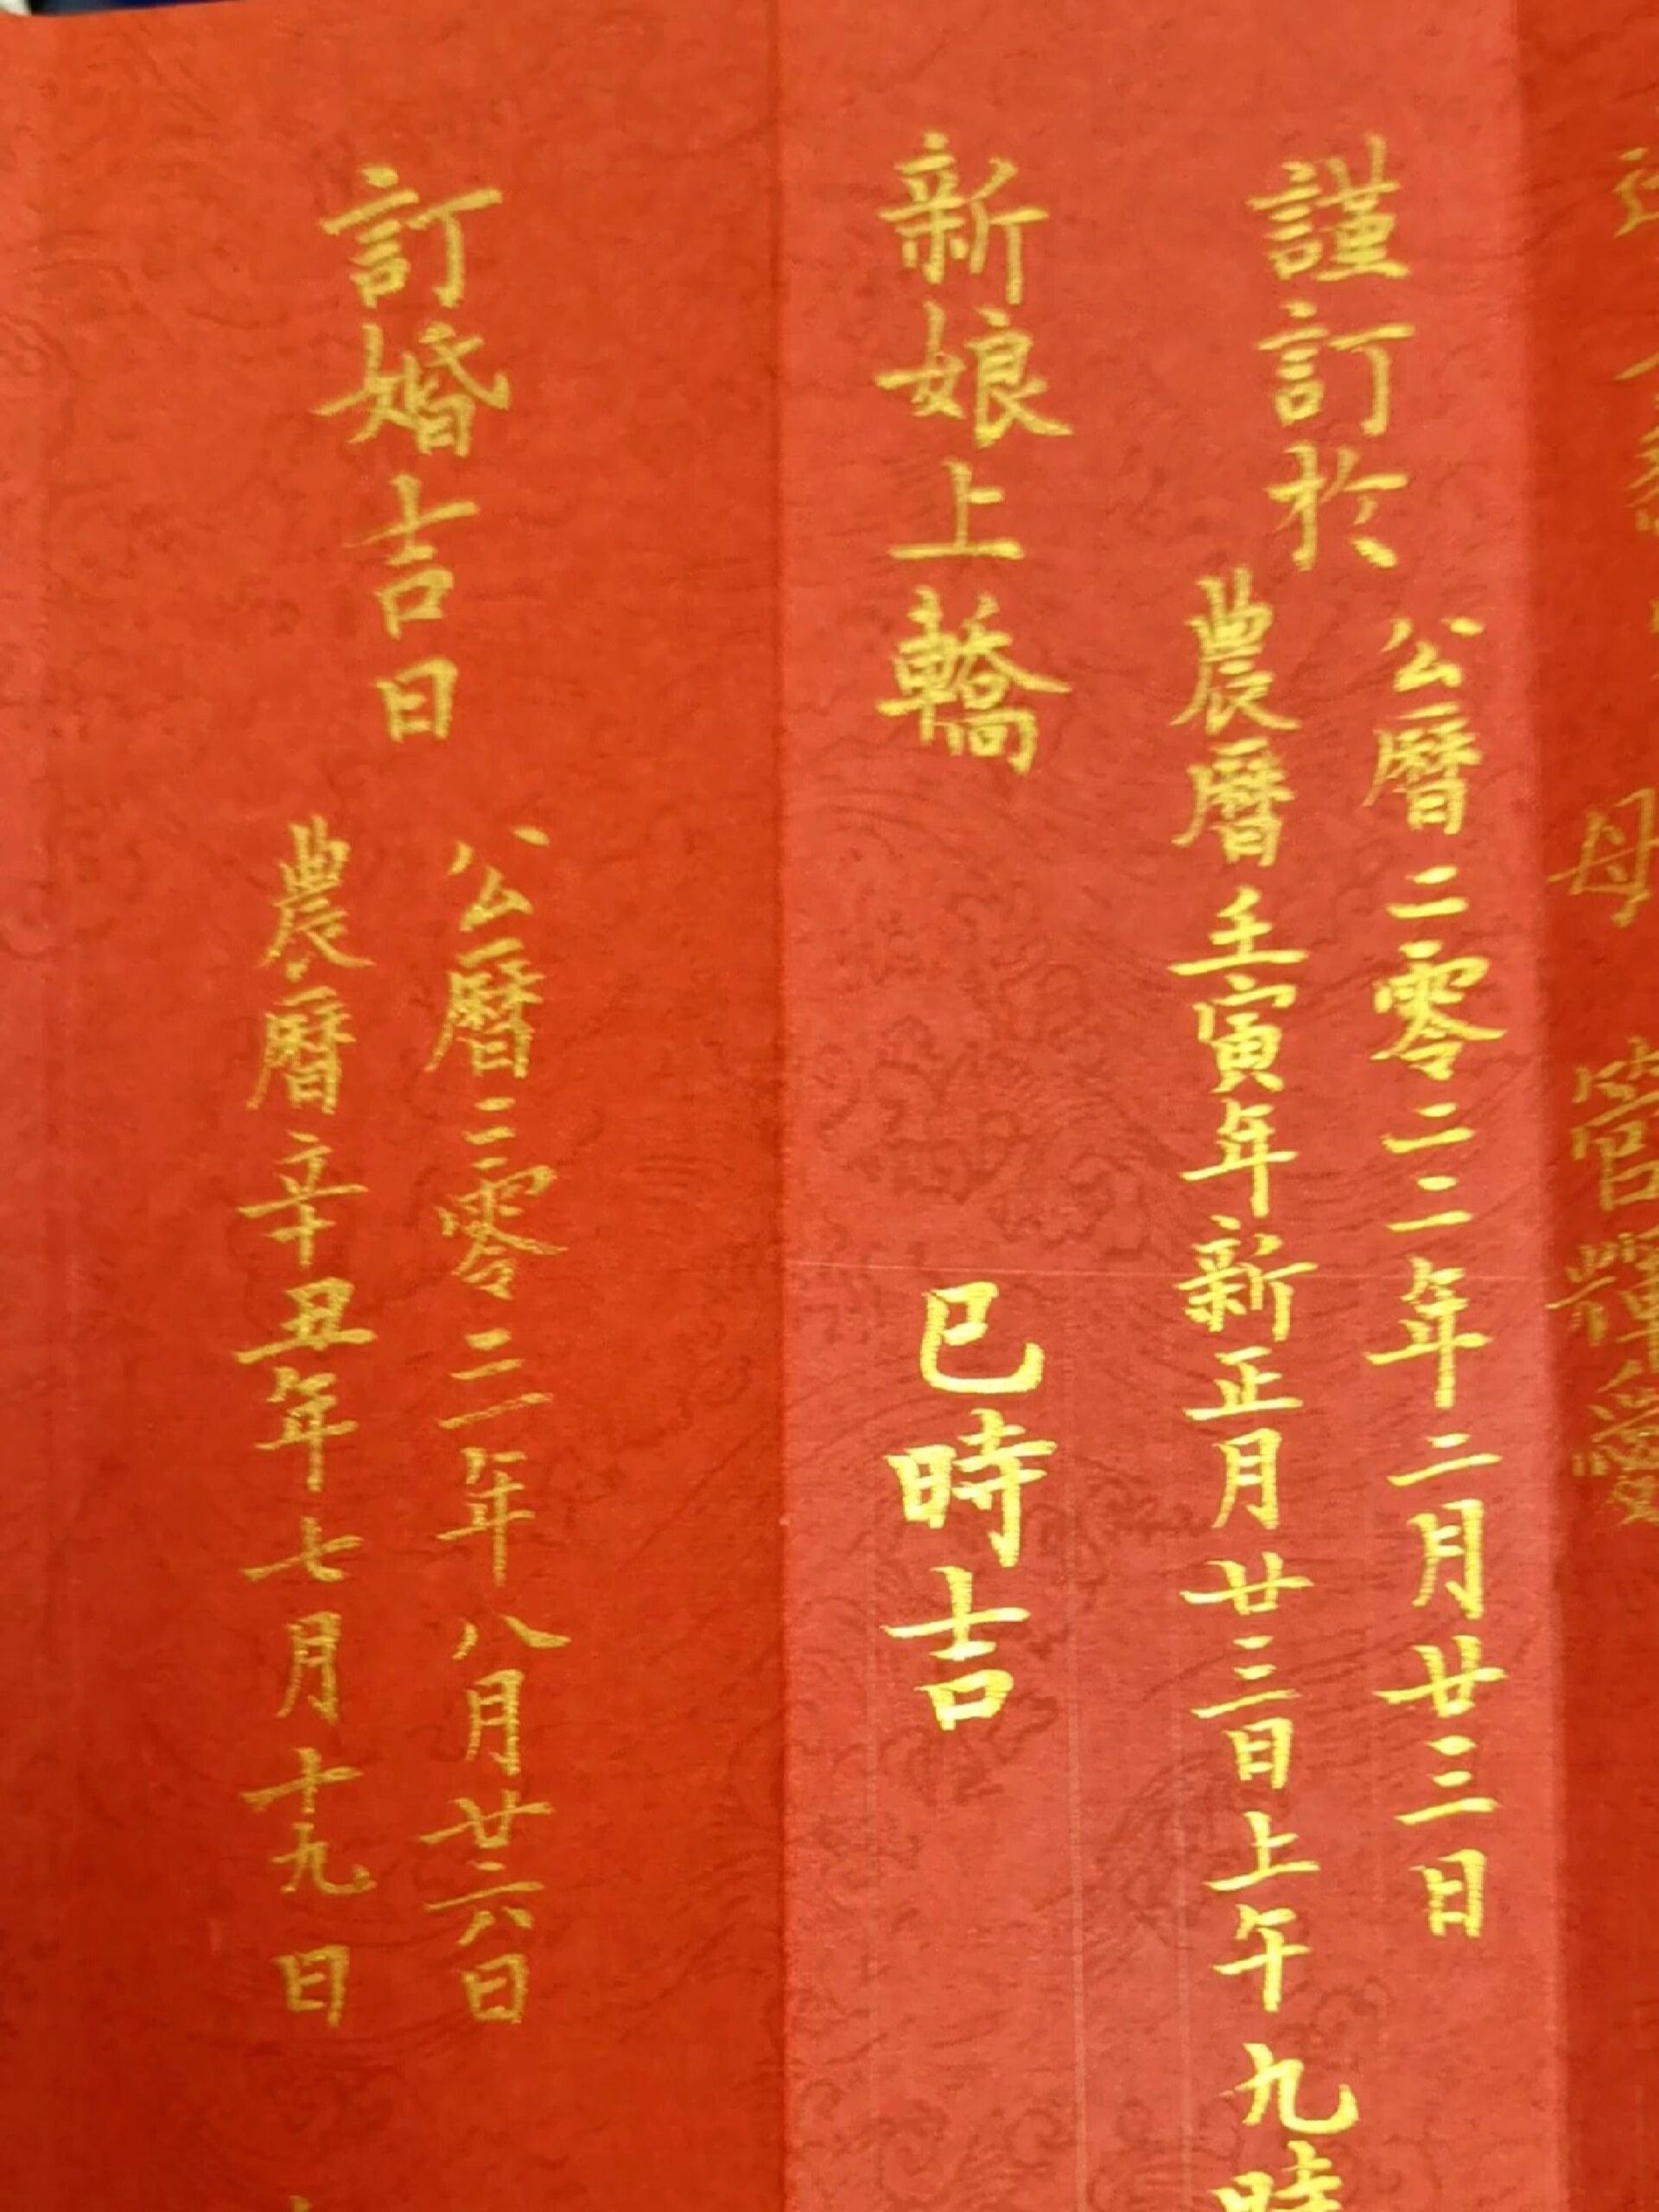 母 管輝
謹訂於
公曆二零二二年二月廿三日
農曆壬寅年新正月廿三日上午九時
新娘上轎 巳時吉
訂婚吉日
公曆二零二一年八月廿六日
農曆辛丑年七月十九日